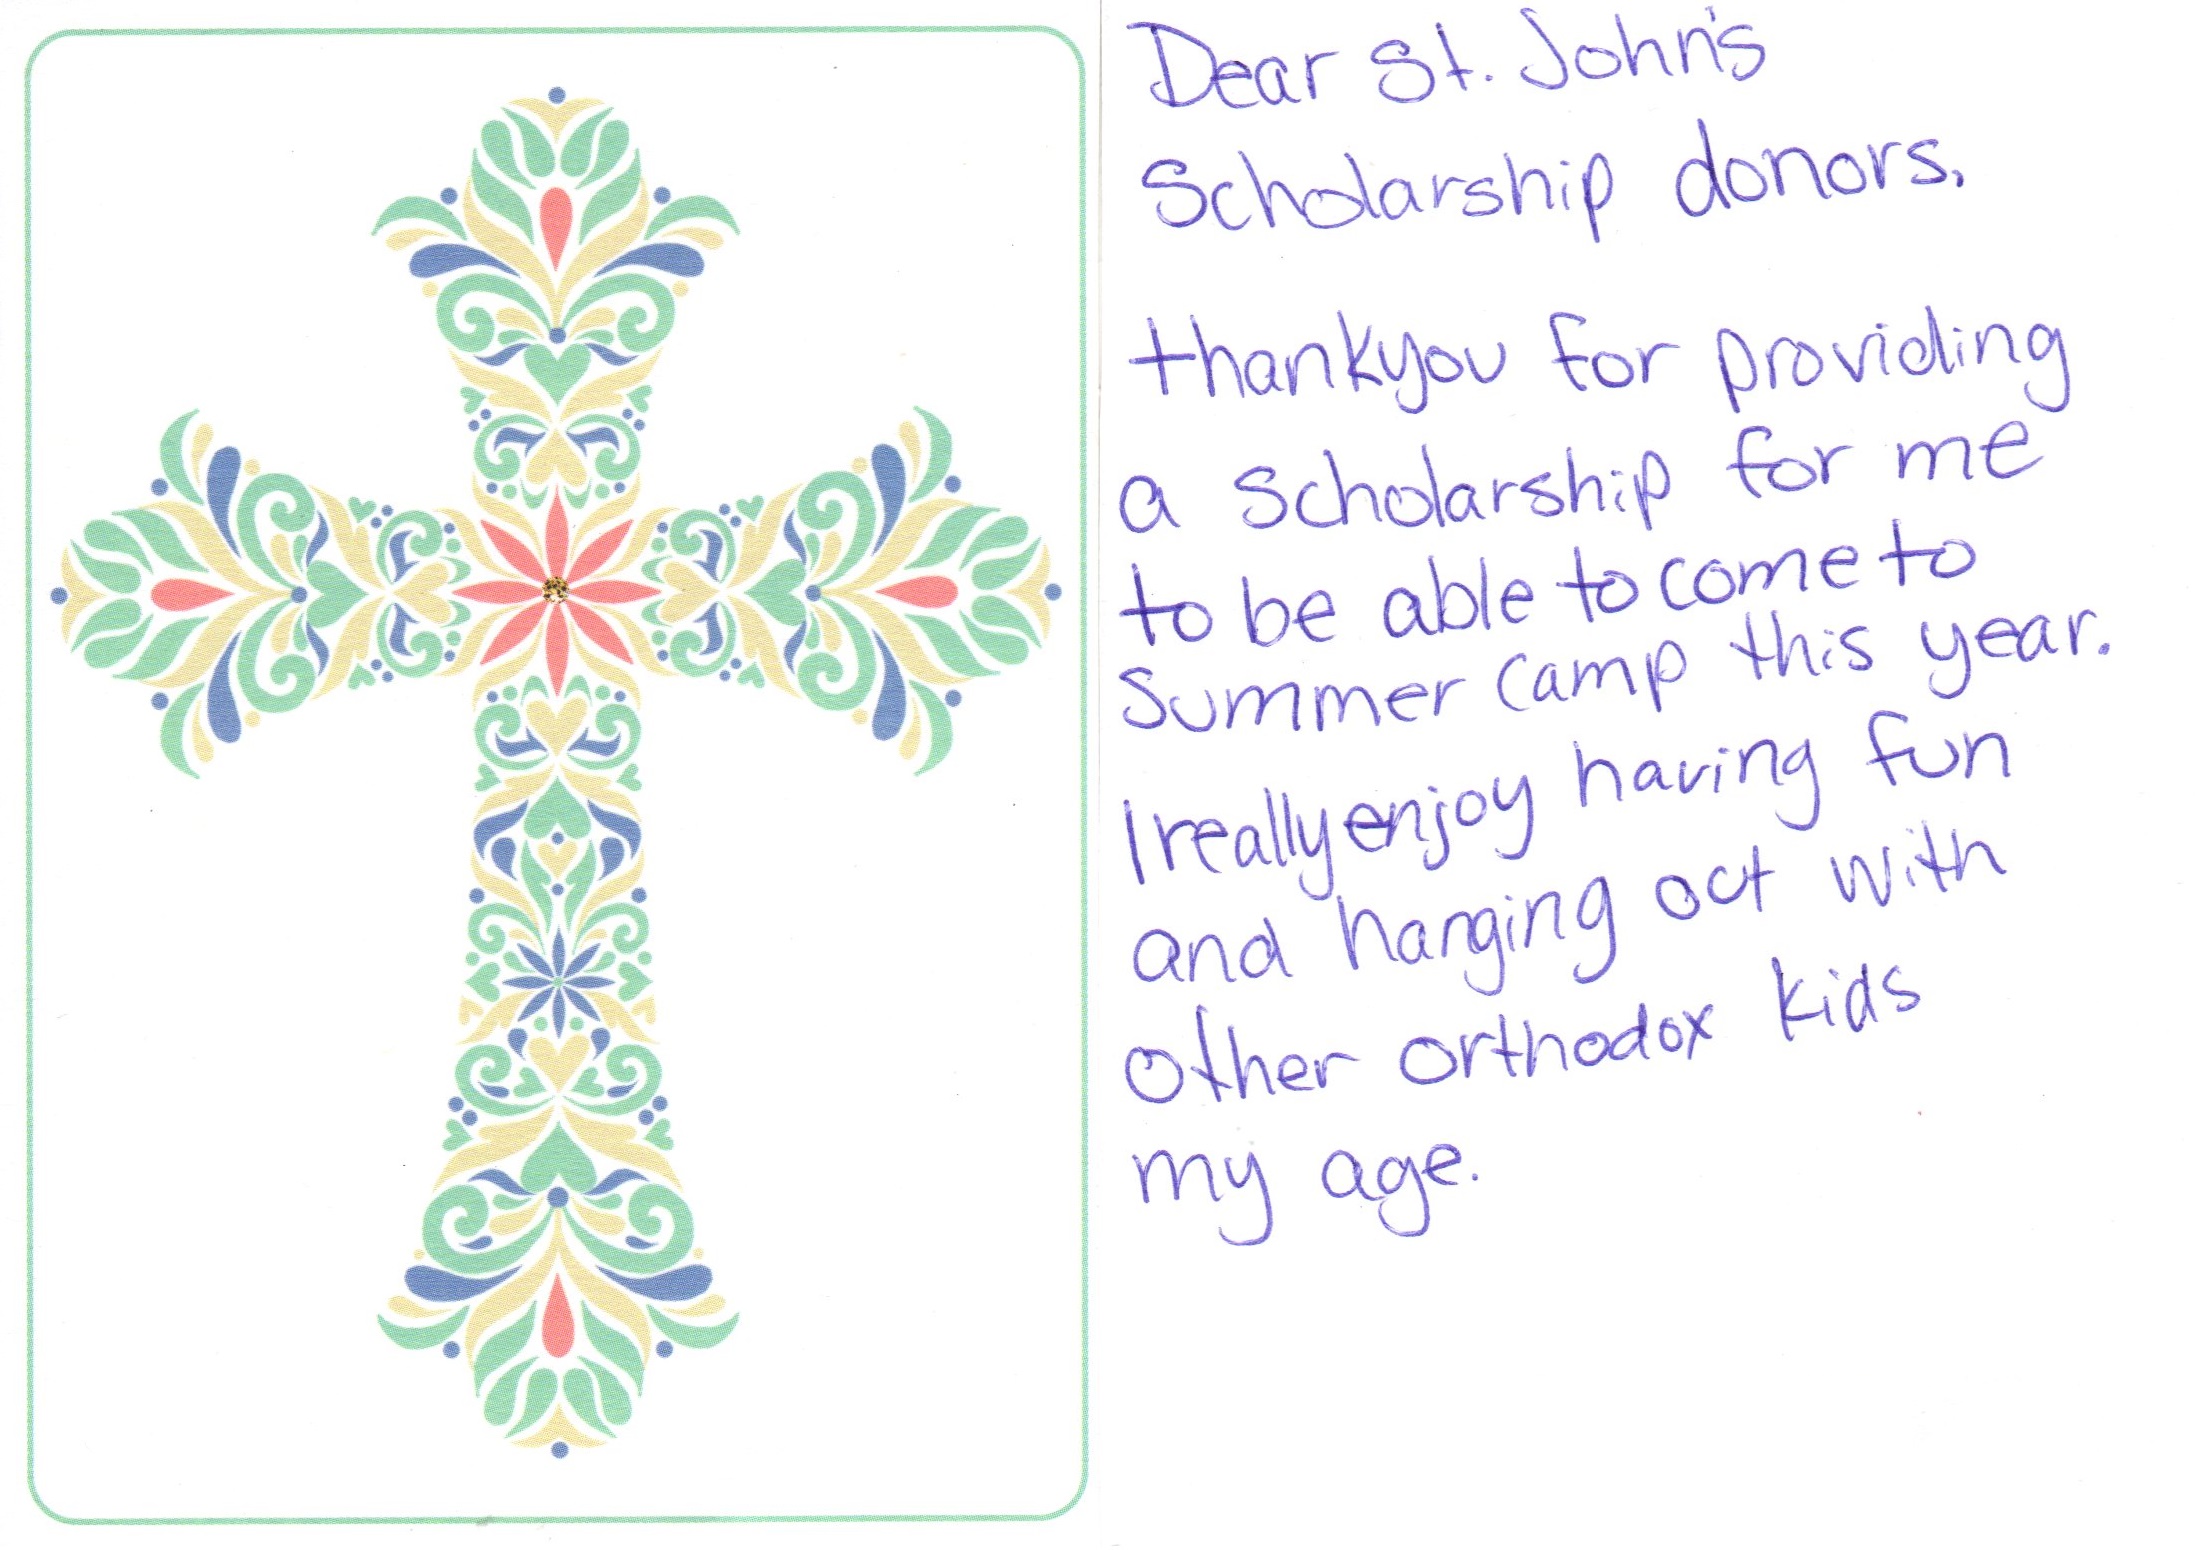 Dear St. John's
Scholarship donors,
thankyou for providing
a scholarship for me
to be able to come to
Summer camp this year.
I really enjoy having fun
and hanging out with
other orthodox kids
my age.